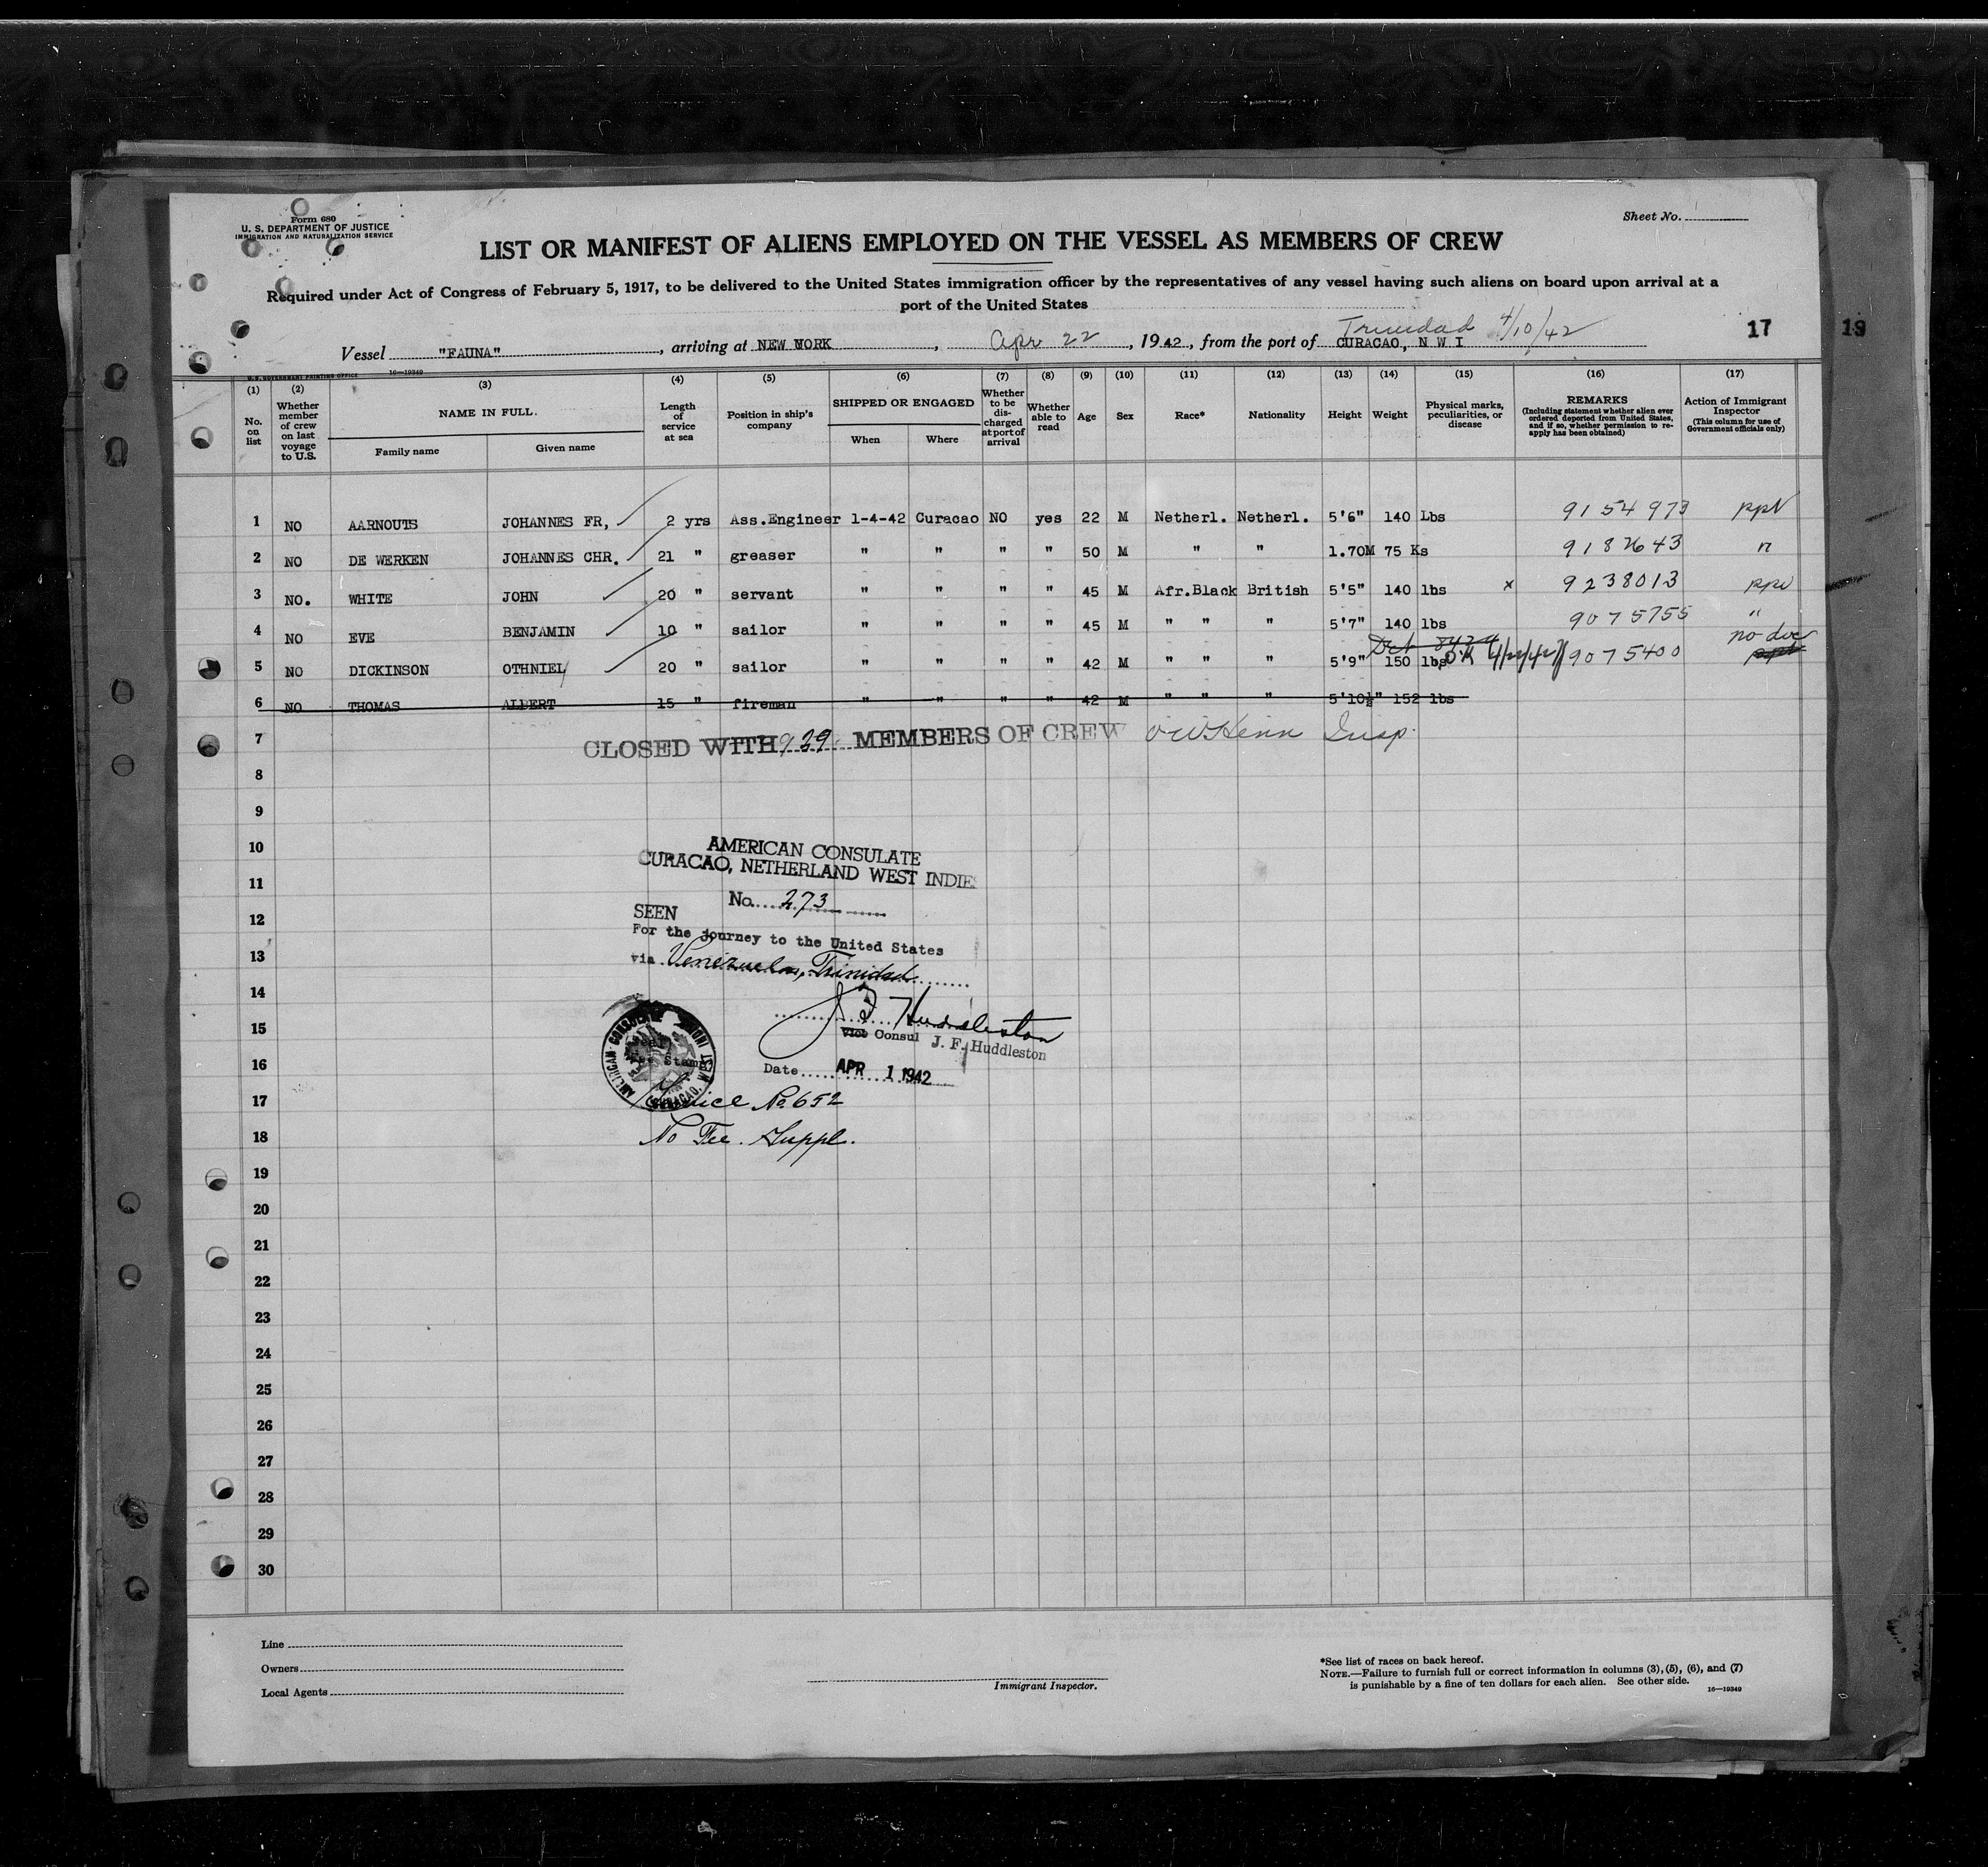 Form 680
U. S. DEPARTMENT OF JUSTICE
IMMIGRATION AND NATURALIZATION SERVICE
Sheet No.
LIST OR MANIFEST OF ALIENS EMPLOYED ON THE VESSEL AS MEMBERS OF CREW
Required under Act of Congress of February 5, 1917, to be delivered to the United States immigration officer by the representatives of any vessel having such aliens on board upon arrival at a
port of the United States
Trinidad 4/10/42
17 19
Vessel "FAUNA", arriving at NEW YORK, Apr 22, 1942, from the port of CURACAO, N W I
U. S. GOVERNMENT PRINTING OFFICE 16—19349
(1) (2) (3) (4) (5) (6) (7) (8) (9) (10) (11) (12) (13) (14) (15) (16) (17)
No. on list
Whether member of crew on last voyage to U.S.
NAME IN FULL.
Family name
Given name
Length of service at sea
Position in ship's company
SHIPPED OR ENGAGED
When
Where
Whether to be discharged at port of arrival
Whether able to read
Age
Sex
Race*
Nationality
Height
Weight
Physical marks, peculiarities, or disease
REMARKS
(Including statement whether alien ever ordered deported from United States, and if so, whether permission to re-apply has been obtained)
Action of Immigrant Inspector
(This column for use of Government officials only)
1 NO AARNOUTS JOHANNES FR, 2 yrs Ass.Engineer 1-4-42 Curacao NO yes 22 M Netherl. Netherl. 5'6" 140 Lbs 9154973 ppt
2 NO DE WERKEN JOHANNES CHR. 21 " greaser " " " " 50 M " " 1.70M 75 Ks 9182643 "
3 NO. WHITE JOHN 20 " servant " " " " 45 M Afr.Black British 5'5" 140 lbs x 9238013 ppt
4 NO EVE BENJAMIN 10 " sailor " " " " 45 M " " " 5'7" 140 lbs 9075755 "
no doc
5 NO DICKINSON OTHNIEL 20 " sailor " " " " 42 M " " " 5'9" 150 lbs OK 4/22/42 9075400 ppt
6 NO THOMAS ALBERT 15 " fireman " " " " 42 M " " " 5'10½" 152 lbs
7 CLOSED WITH 29 MEMBERS OF CREW Insp.
8
9
10
AMERICAN CONSULATE
CURACAO, NETHERLAND WEST INDIE
11
No. 273
12 SEEN
For the journey to the United States
13 via Venezuela, Trinidad
14
J F Huddleston
15 Vice Consul J. F. Huddleston
AMERICAN CONSULATE CURACAO
Fee Stamp
16 Date APR 1 1942
17 Service No 652
18 No Fee. Suppl.
19
20
21
22
23
24
25
26
27
28
29
30
Line
Owners
Local Agents
Immigrant Inspector.
*See list of races on back hereof.
NOTE.—Failure to furnish full or correct information in columns (3), (5), (6), and (7)
is punishable by a fine of ten dollars for each alien. See other side.
16—19349